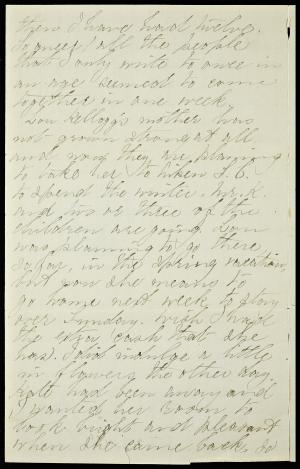 then I have had twelve.
It seems all the people
that I only write to once in
an age seemed to come
together in one week.
Lou Kellogg's mother has
not grown strong at all
and now they are planning
to take her to Aiken S. C.
to spend the winter. Mr. K.
and two or three of the
children are going. Lou
was planning to go there
in the spring vacation,
but now she means to
go home next week to stay
over Sunday. Wish I had
the extra cash that she
has. I did indulge a little
in flowers the other day.
Kate had been away and
I wanted her room to
look bright and pleasant
when she came back, so